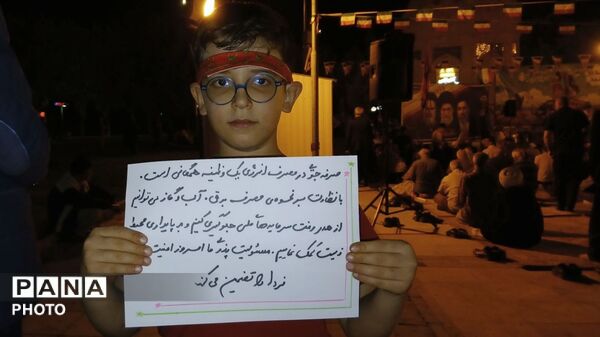 صرفه جویی در مصرف انرژی یک وظیفه همگانی است.
با نظارت بر نحوه ی مصرف برق، آب و گاز می توانیم
از هدر رفت سرمایه های ملی جلوگیری کنیم و به پایداری محیط
زیست کمک نماییم. مسئولیت پذیری ما امروز امنیت
فردا را تضمین می کند
PANA
PHOTO